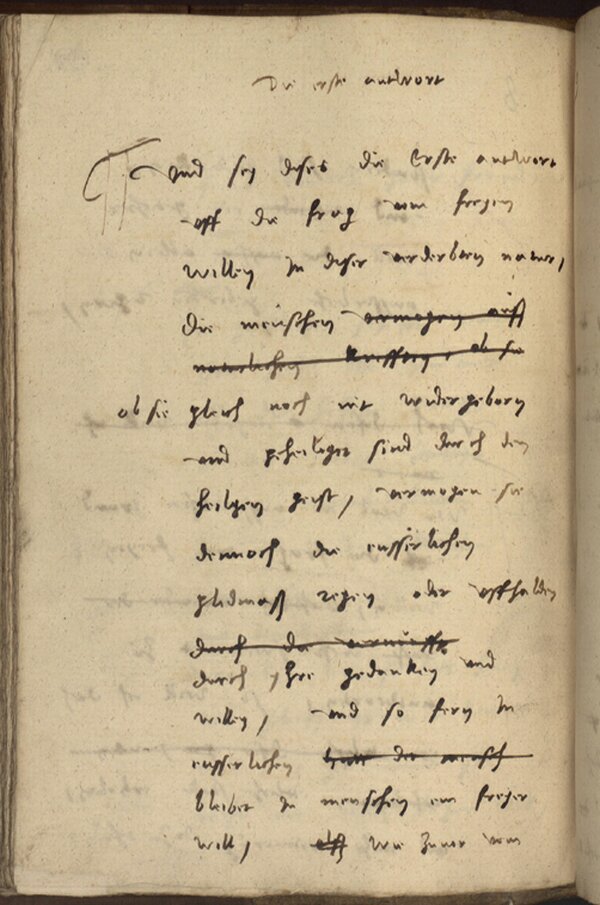 Die erste antwort
Und sey dises die Erste antwort
uff die frag vom freyen
willen in diser verderbten natur,
die menschen vermogen auß
naturlichen krefften, ob sie
ob sie gleich noch nit widergeborn
und geheiliget sind durch den
heilgen geist, vermogen sie
dennoch die eusserlichen
glidmaß regen oder uffhalden
durch die vernunfft
durch ihre gedanken und
willen, und so fern in
eusserlichen der mensch
bleibet in menschen ein freyer
will, wie zuvor vom